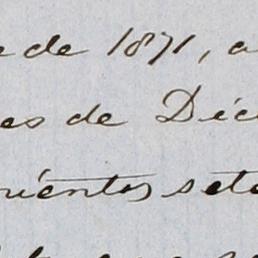 e de 1871, a
es de Dic
rientos sete